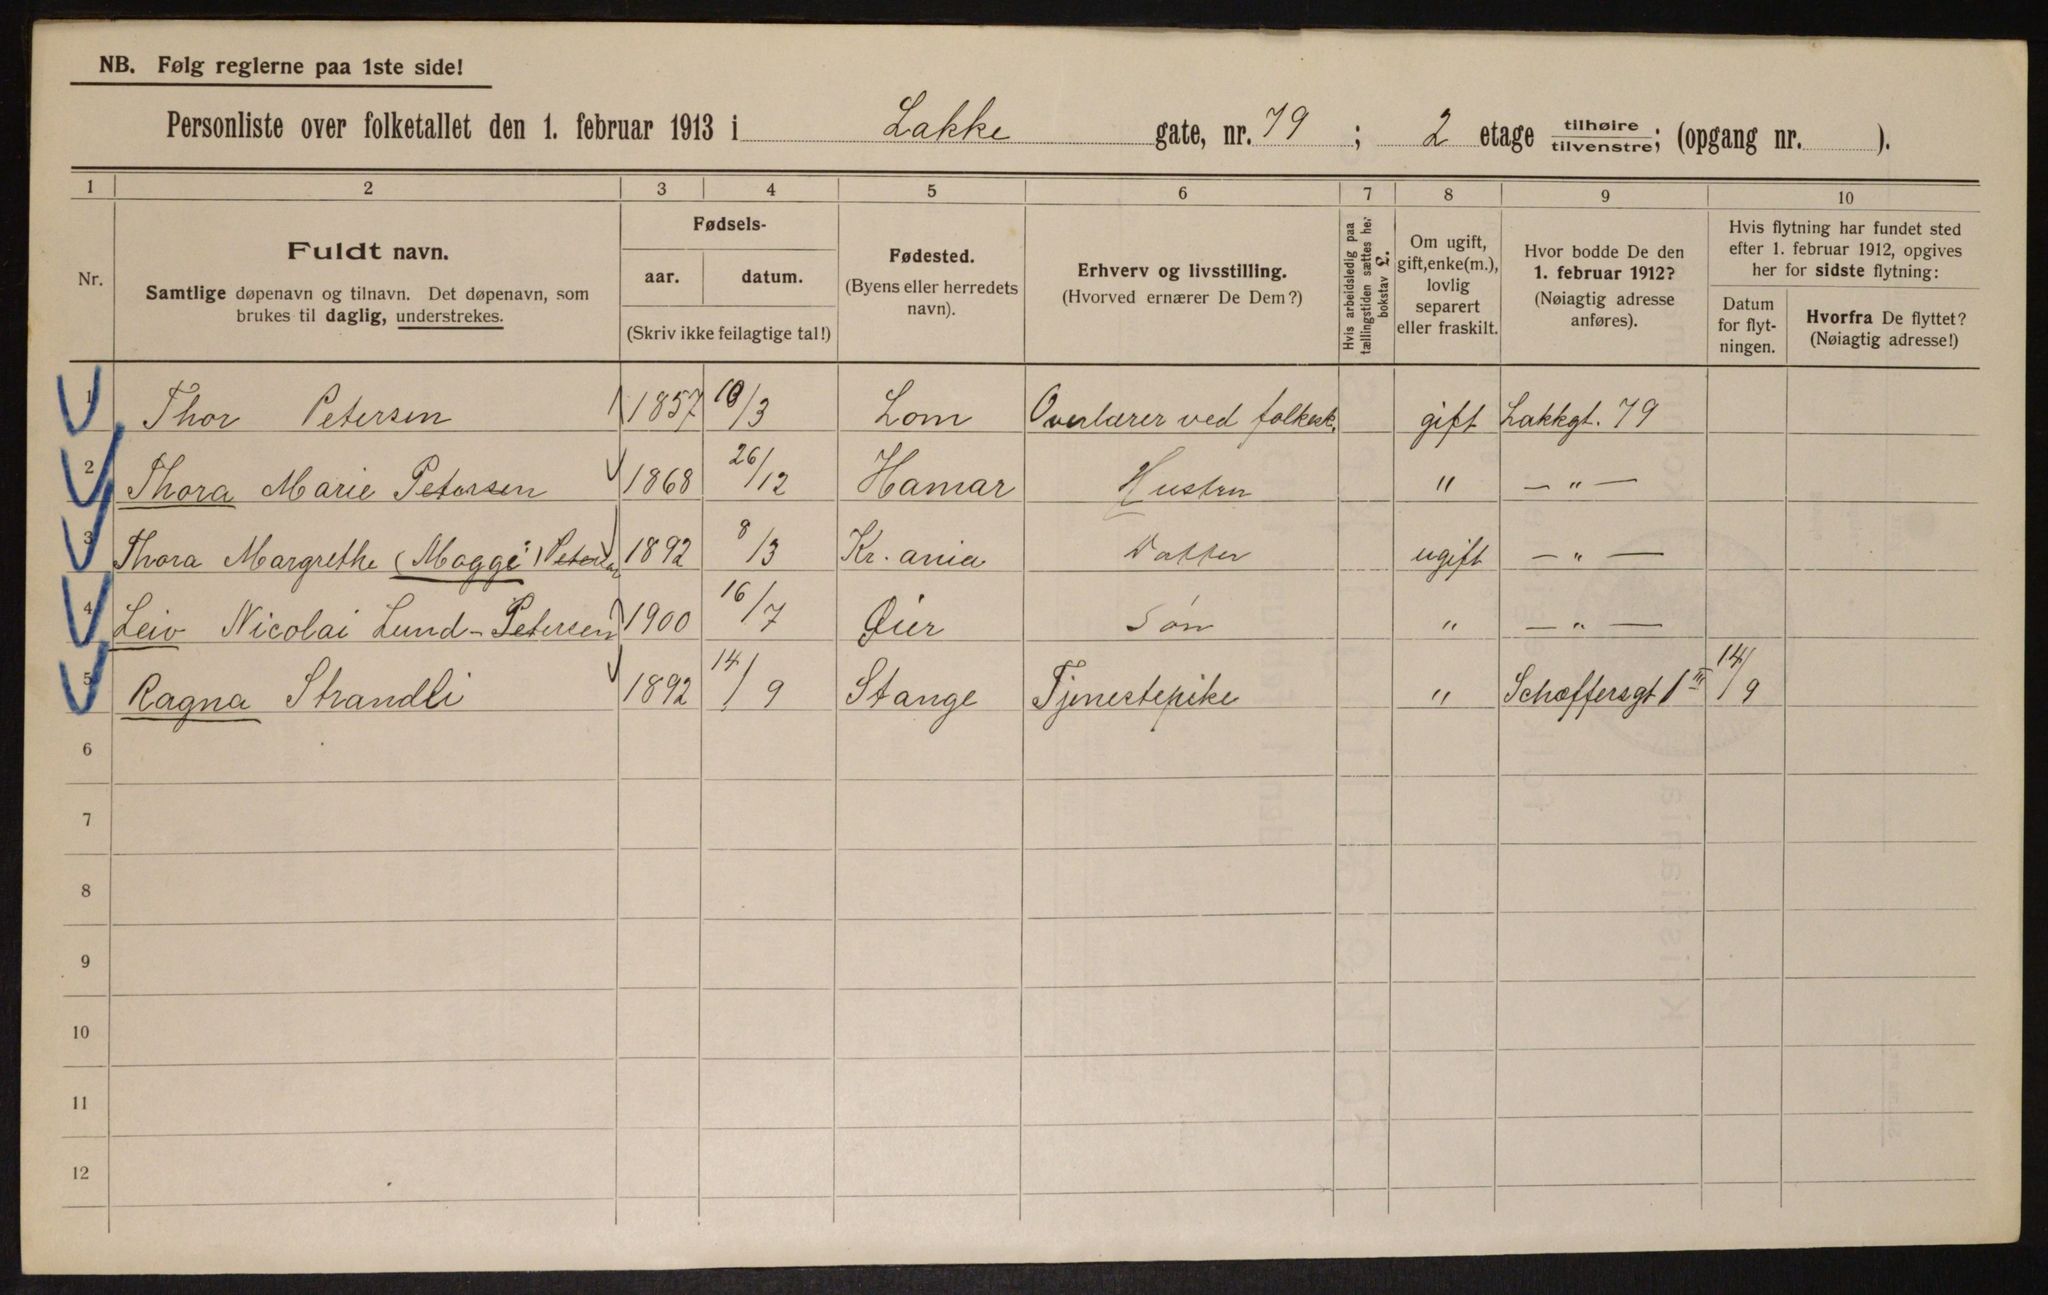 NB. Følg reglerne paa 1ste side!
Personliste over folketallet den 1. februar 1913 i Lakke gate, nr. 79 ; 2 etage tilhøire tilvenstre; (opgang nr. ).
1 2 3 4 5 6 7 8 9 10
Nr.
Fuldt navn.
Samtlige døpenavn og tilnavn. Det døpenavn, som
brukes til daglig, understrekes.
Fødsels-
aar. datum.
(Skriv ikke feilagtige tal!)
Fødested.
(Byens eller herredets
navn).
Erhverv og livsstilling.
(Hvorved ernærer De Dem?)
Hvis arbeidsledig paa
tællingstiden sættes her
bokstav L.
Om ugift,
gift, enke(m.),
lovlig
separert
eller fraskilt.
Hvor bodde De den
1. februar 1912?
(Nøiagtig adresse
anføres).
Hvis flytning har fundet sted
efter 1. februar 1912, opgives
her for sidste flytning:
Datum
for flyt-
ningen.
Hvorfra De flyttet?
(Nøiagtig adresse!)
1 Thor Petersen 1857 /3 Lom Overlærer ved folkesk. gift Lakkgt. 79
2 Thora Marie Petersen 1868 26/12 Hamar Hustru " — " —
3 Thora Margrethe (Mogge) Petersen 1892 8/3 Kr.ania Datter ugift — " —
4 Leiv Nicolai Lund-Petersen 1900 16/7 Øier Søn " — " —
5 Ragna Strandli 1892 14/9 Stange Tjenestepike " Schæffersgt 1 III 14/9
6
7
8
9
10
11
12